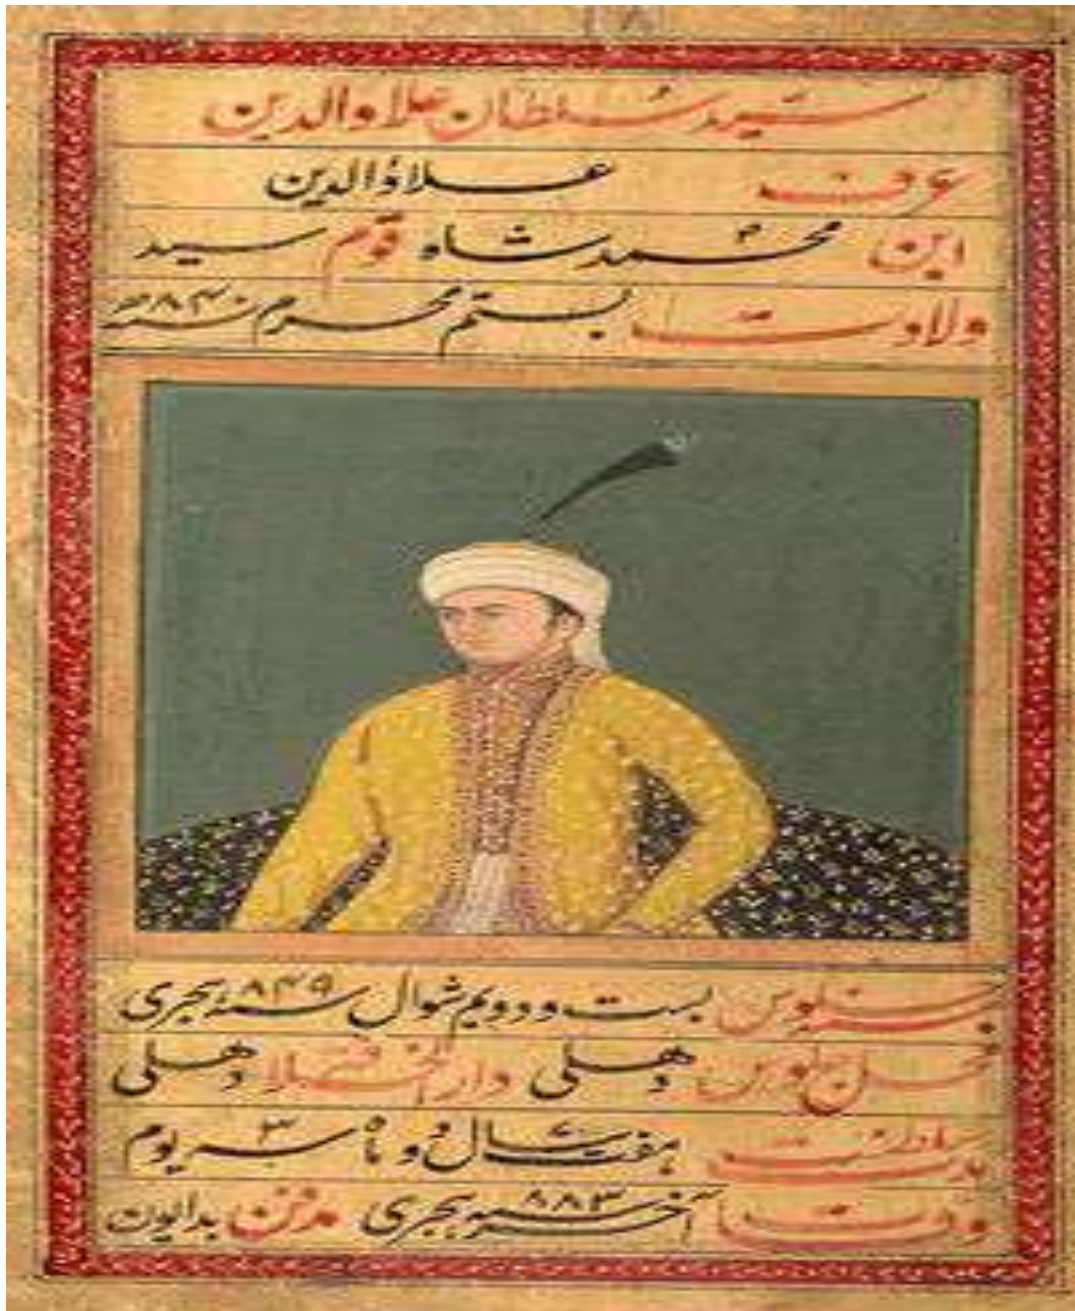 ۸
سید سلطان علاوالدین
عرف علاؤالدین
ابن محمد شاه قوم سید
ولادت بستم محرم سنه ۸۴۰
جلوس بست و دویم شوال سنه ۸۴۹ هجری
محل جلوس دهلی دارالخلافة دهلی
مدت سلطنت هفت سال و دو ماه سه ۳ یوم
وفات آخر سنه ۸۸۳ هجری مدفن بدایون